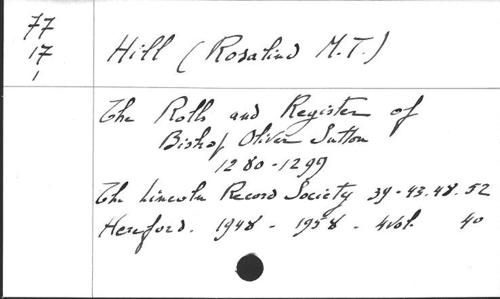 77
17
1
Hill (Rosalind M.T.)
The Rolls and Register of
Bishop Oliver Sutton
1280-1299
The Lincoln Record Society 39-43.48.52
Hereford. 1948 - 1958 - 4 vol. 40